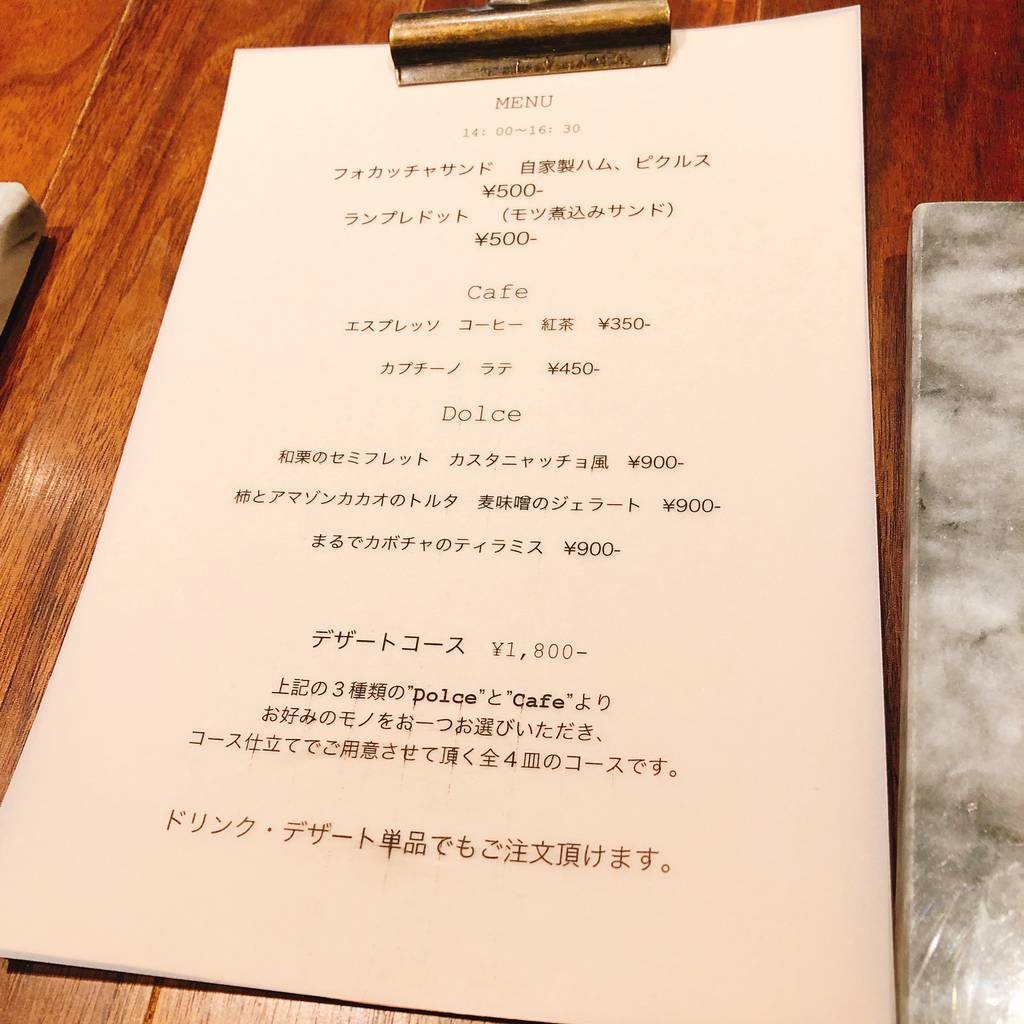 MENU
14：00〜16：30
フォカッチャサンド　自家製ハム、ピクルス
¥500-
ランプレドット　（モツ煮込みサンド）
¥500-
Cafe
エスプレッソ　コーヒー　紅茶　¥350-
カプチーノ　ラテ　¥450-
Dolce
和栗のセミフレット　カスタニャッチョ風　¥900-
柿とアマゾンカカオのトルタ　麦味噌のジェラート　¥900-
まるでカボチャのティラミス　¥900-
デザートコース　¥1,800-
上記の３種類の"Dolce"と"Cafe"より
お好みのモノをお一つお選びいただき、
コース仕立てでご用意させて頂く全４皿のコースです。
ドリンク・デザート単品でもご注文頂けます。